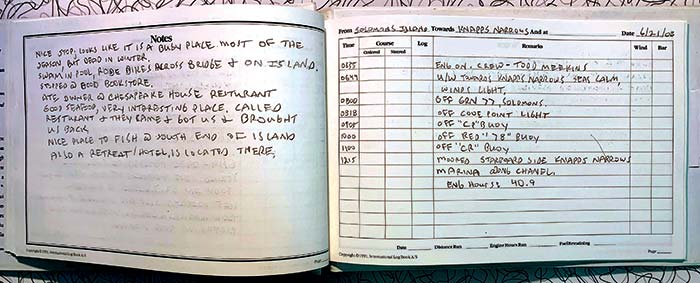 Notes
NICE STOP, LOOKS LIKE IT IS A BUSY PLACE MOST OF THE
SEASON, BUT DEAD IN WINTER.
SWAM IN POOL, RODE BIKES ACROSS BRIDGE & ON ISLAND.
STOPED @ GOOD BOOKSTORE.
ATE DINNER @ CHESAPEAKE HOUSE RESTURANT
GOOD SEAFOOD, VERY INTERESTING PLACE, CALLED
RESTURANT & THEY CAME & GOT US & BROUGHT
US BACK
NICE PLACE TO FISH @ SOUTH END OF ISLAND
ALSO A RETREAT/HOTEL, IS LOCATED THERE,
Copyright © 1991, International Log Book A/S
Page
From SOLOMONS ISLAND Towards KNAPPS NARROWS And at Date 6/21/08
Time Course Log Remarks Wind Bar
Ordered Steered
0635 ENG ON. CREW - TODD MERKINS
0647 U/W TOWARDS KNAPPS NARROWS SEAS CALM,
WINDS LIGHT,
0800 OFF GRN 77, SOLOMONS.
0818 OFF COVE POINT LIGHT
0905 OFF "CP" BUOY
1000 OFF RED "78" BUOY
1100 OFF "CR" BUOY
1215 MOORED STARBOARD SIDE KNAPPS NARROWS
MARINA ALONG CHANEL.
ENG HOURS: 40.9
Date Distance Run Engine Hours Run Fuel Remaining
Copyright © 1991, International Log Book A/S Page